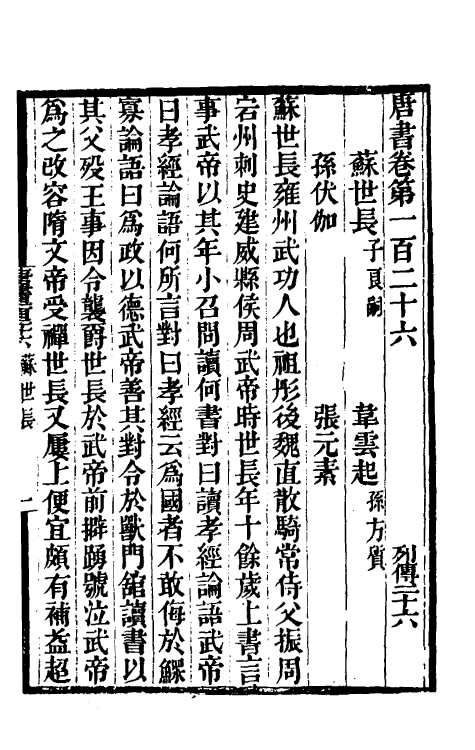 唐書卷第一百二十六
列傳三十六
蘇世長 子良嗣 韋雲起 孫方質
孫伏伽 張元素
蘇世長雍州武功人也祖彤後魏直散騎常侍父振周
宕州刺史建威縣侯周武帝時世長年十餘歲上書言
事武帝以其年小召問讀何書對曰讀孝經論語武帝
曰孝經論語何所言對曰孝經云為國者不敢侮於鰥
寡論語曰為政以德武帝善其對令於獸門舘讀書以
其父歿王事因令襲爵世長於武帝前擗踴號泣武帝
為之改容隋文帝受禪世長又屢上便宜頗有補益超
蘇世長
一